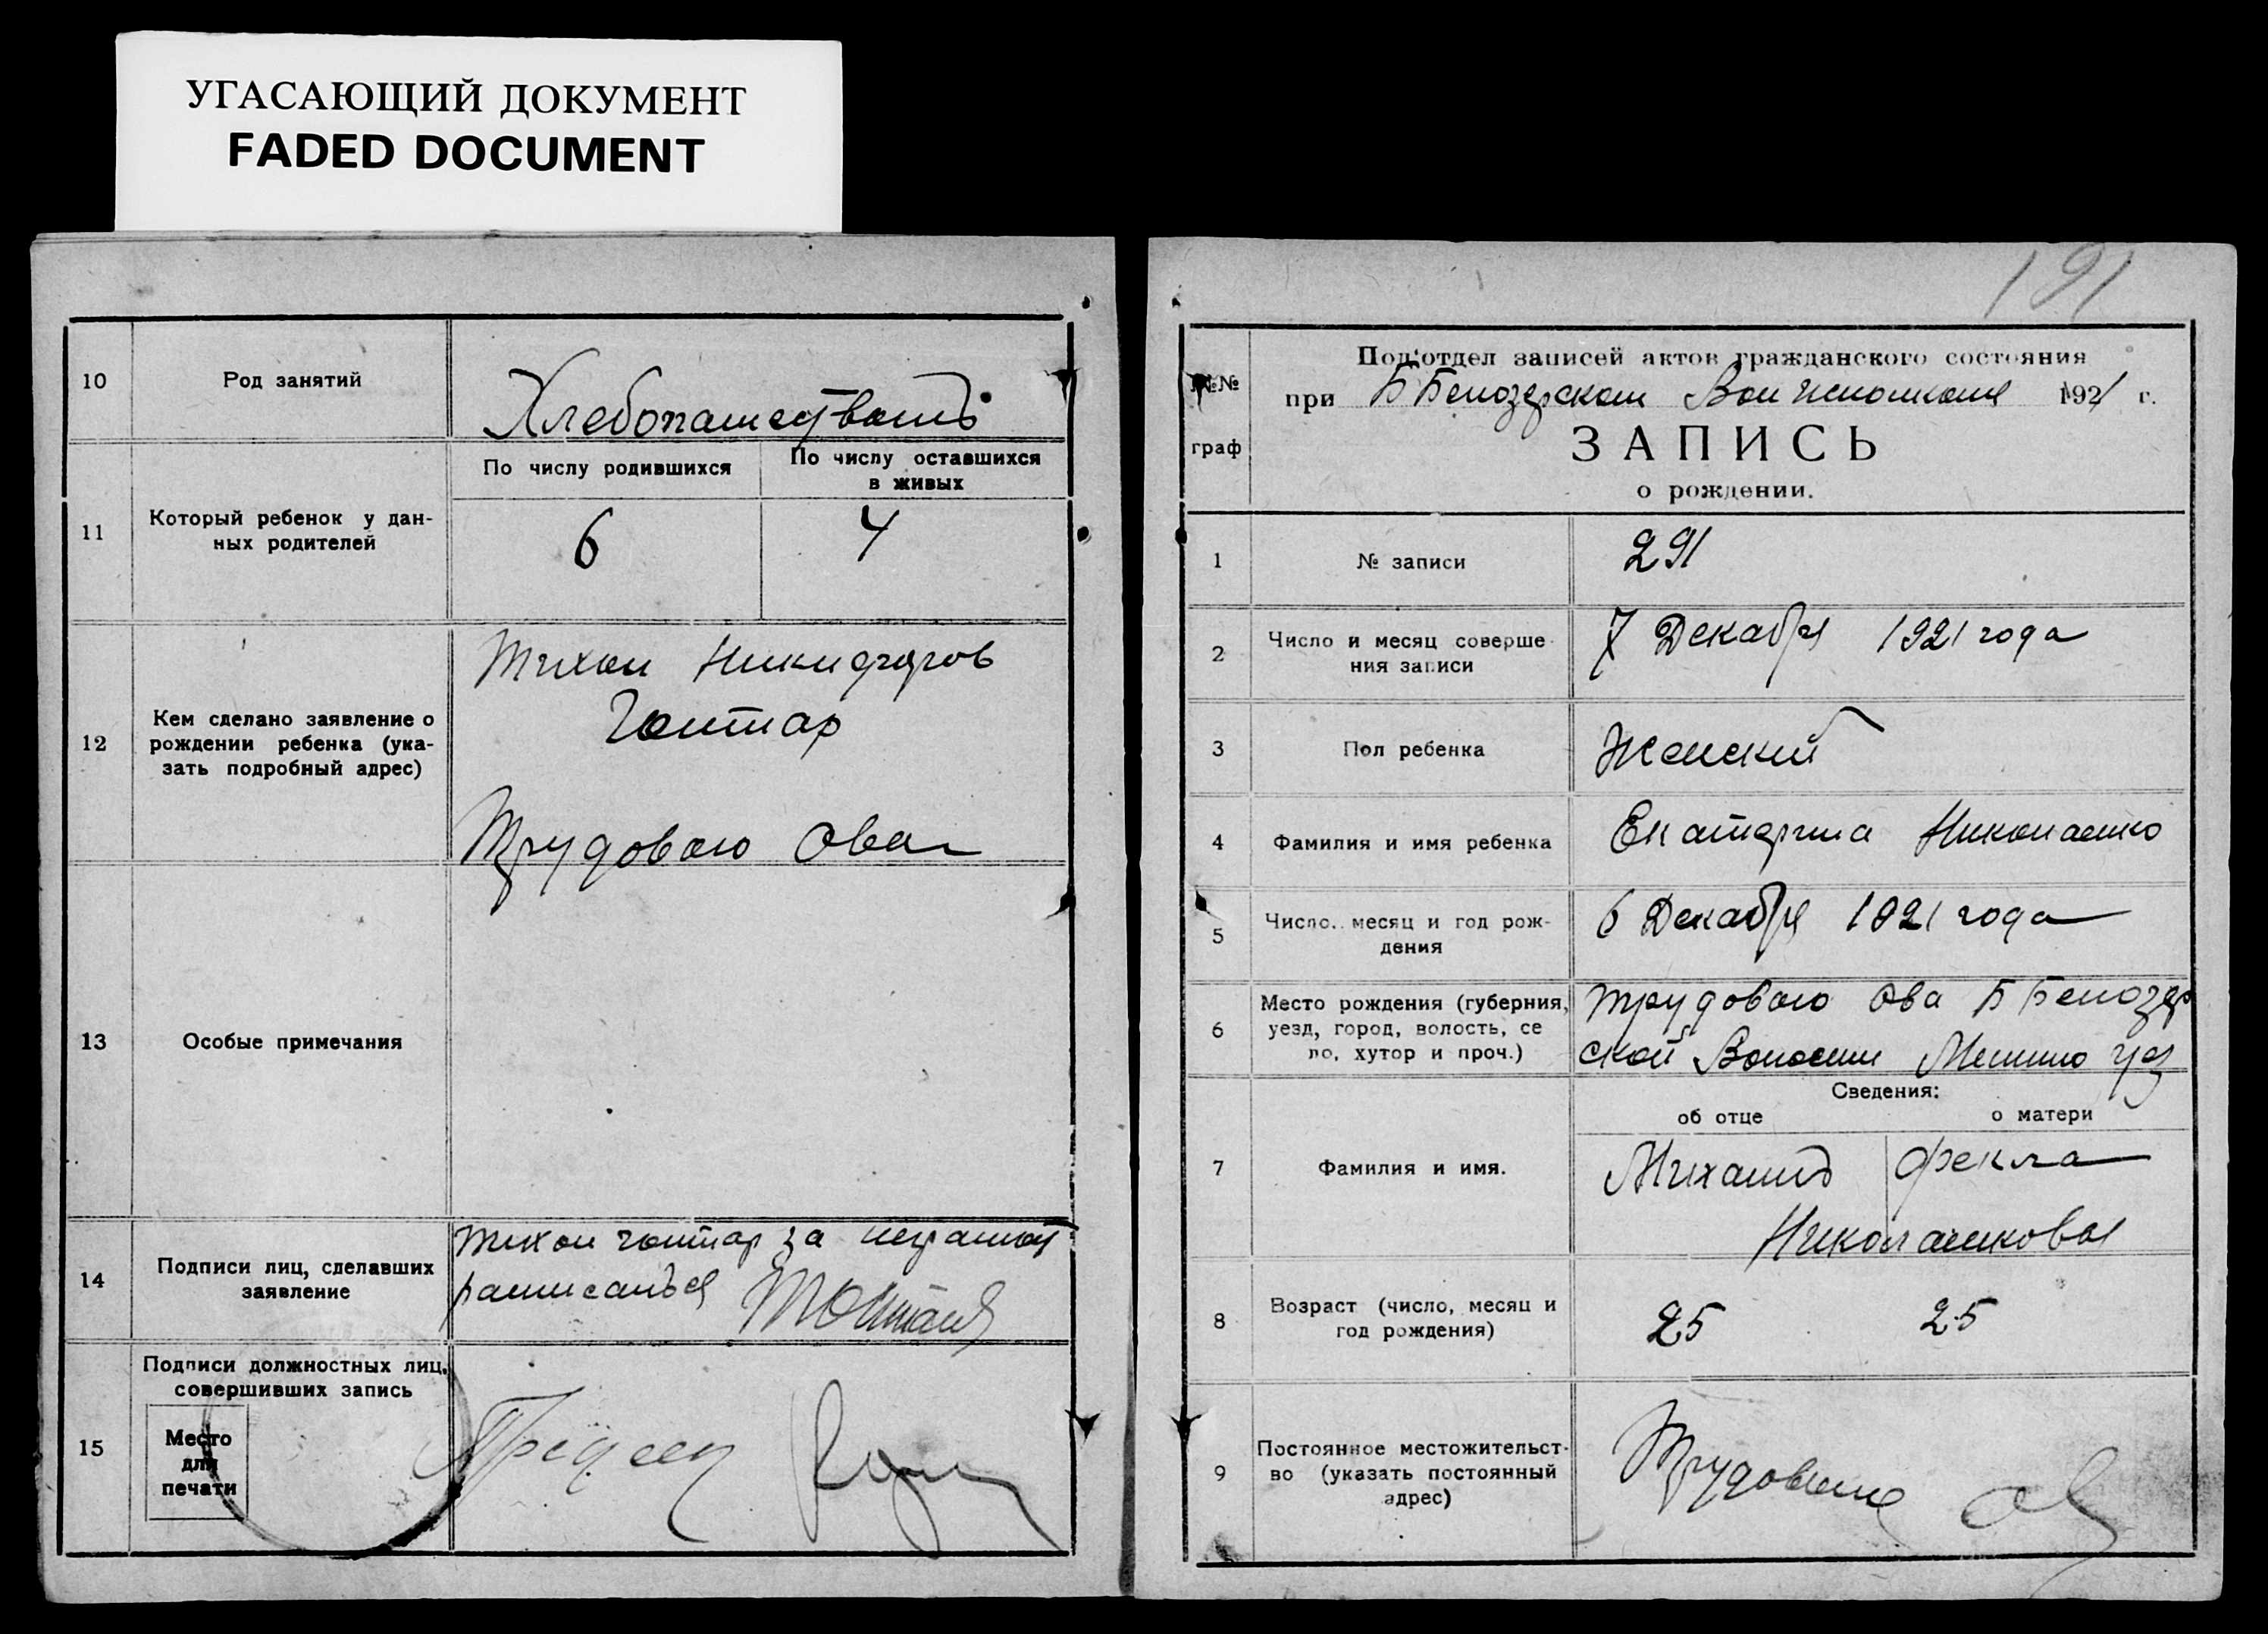 УГАСАЮЩИЙ ДОКУМЕНТ
FADED DOCUMENT
10
Род занятий
Хлебопашествомъ
11
Который ребенок у дан-
ных родителей
По числу родившихся
По числу оставшихся
в живых
6
4
12
Кем сделано заявление о
рождении ребенка (ука-
зать подробный адрес)
Тихон Никифоров
Гонтар
Трудового Ова
13
Особые примечания
14
Подписи лиц, сделавших
заявление
Тихон Гонтар за неграмот
15
Подписи должностных лиц,
совершивших запись
Место
для
печати
191
№№
граф
Под'отдел записей актов гражданского состояния
при Б Белозерском Волисполкоме 1921 г.
ЗАПИСЬ
о рождении.
1
№ записи
291
2
Число и месяц соверше-
ния записи
7 Декабря 1921 года
3
Пол ребенка
Женский
4
Фамилия и имя ребенка
Екатерина Николаенко
5
Число, месяц и год рож-
дения
6 Декабря 1921 года
6
Место рождения (губерния,
уезд, город, волость, се
ло, хутор и проч.)
Трудового Ова Б Белозер
ской Волости уез
Сведения:
об отце
о матери
7
Фамилия и имя.
Михаилъ
Фекла
Николаенковы
8
Возраст (число, месяц и
год рождения)
25
25
9
Постоянное местожительст-
во (указать постоянный
адрес)